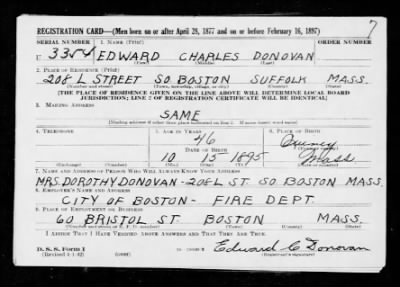 7
REGISTRATION CARD—(Men born on or after April 28, 1877 and on or before February 16, 1897)
SERIAL NUMBER 1. NAME (Print) ORDER NUMBER
U EDWARD CHARLES DONOVAN
(First) (Middle) (Last)
2. PLACE OF RESIDENCE (Print)
208 L STREET SO. BOSTON SUFFOLK MASS.
(Number and street) (Town, township, village, or city) (County) (State)
[THE PLACE OF RESIDENCE GIVEN ON THE LINE ABOVE WILL DETERMINE LOCAL BOARD
JURISDICTION; LINE 2 OF REGISTRATION CERTIFICATE WILL BE IDENTICAL]
3. MAILING ADDRESS
SAME
[Mailing address if other than place indicated on line 2. If same insert word same]
4. TELEPHONE 5. AGE IN YEARS 6. PLACE OF BIRTH
46 Quincy
DATE OF BIRTH (Town or county)
10 15 1895 Mass
(Exchange) (Number) (Mo.) (Day) (Yr.) (State or country)
7. NAME AND ADDRESS OF PERSON WHO WILL ALWAYS KNOW YOUR ADDRESS
MRS. DOROTHY DONOVAN - 208 L ST. SO BOSTON MASS.
8. EMPLOYER'S NAME AND ADDRESS
CITY OF BOSTON - FIRE DEPT.
9. PLACE OF EMPLOYMENT OR BUSINESS
60 BRISTOL ST. BOSTON MASS.
(Number and street or R. F. D. number) (Town) (County) (State)
I AFFIRM THAT I HAVE VERIFIED ABOVE ANSWERS AND THAT THEY ARE TRUE.
D. S. S. Form 1
(Revised 4-1-42) (over) Edward C Donovan
(Registrant's signature)